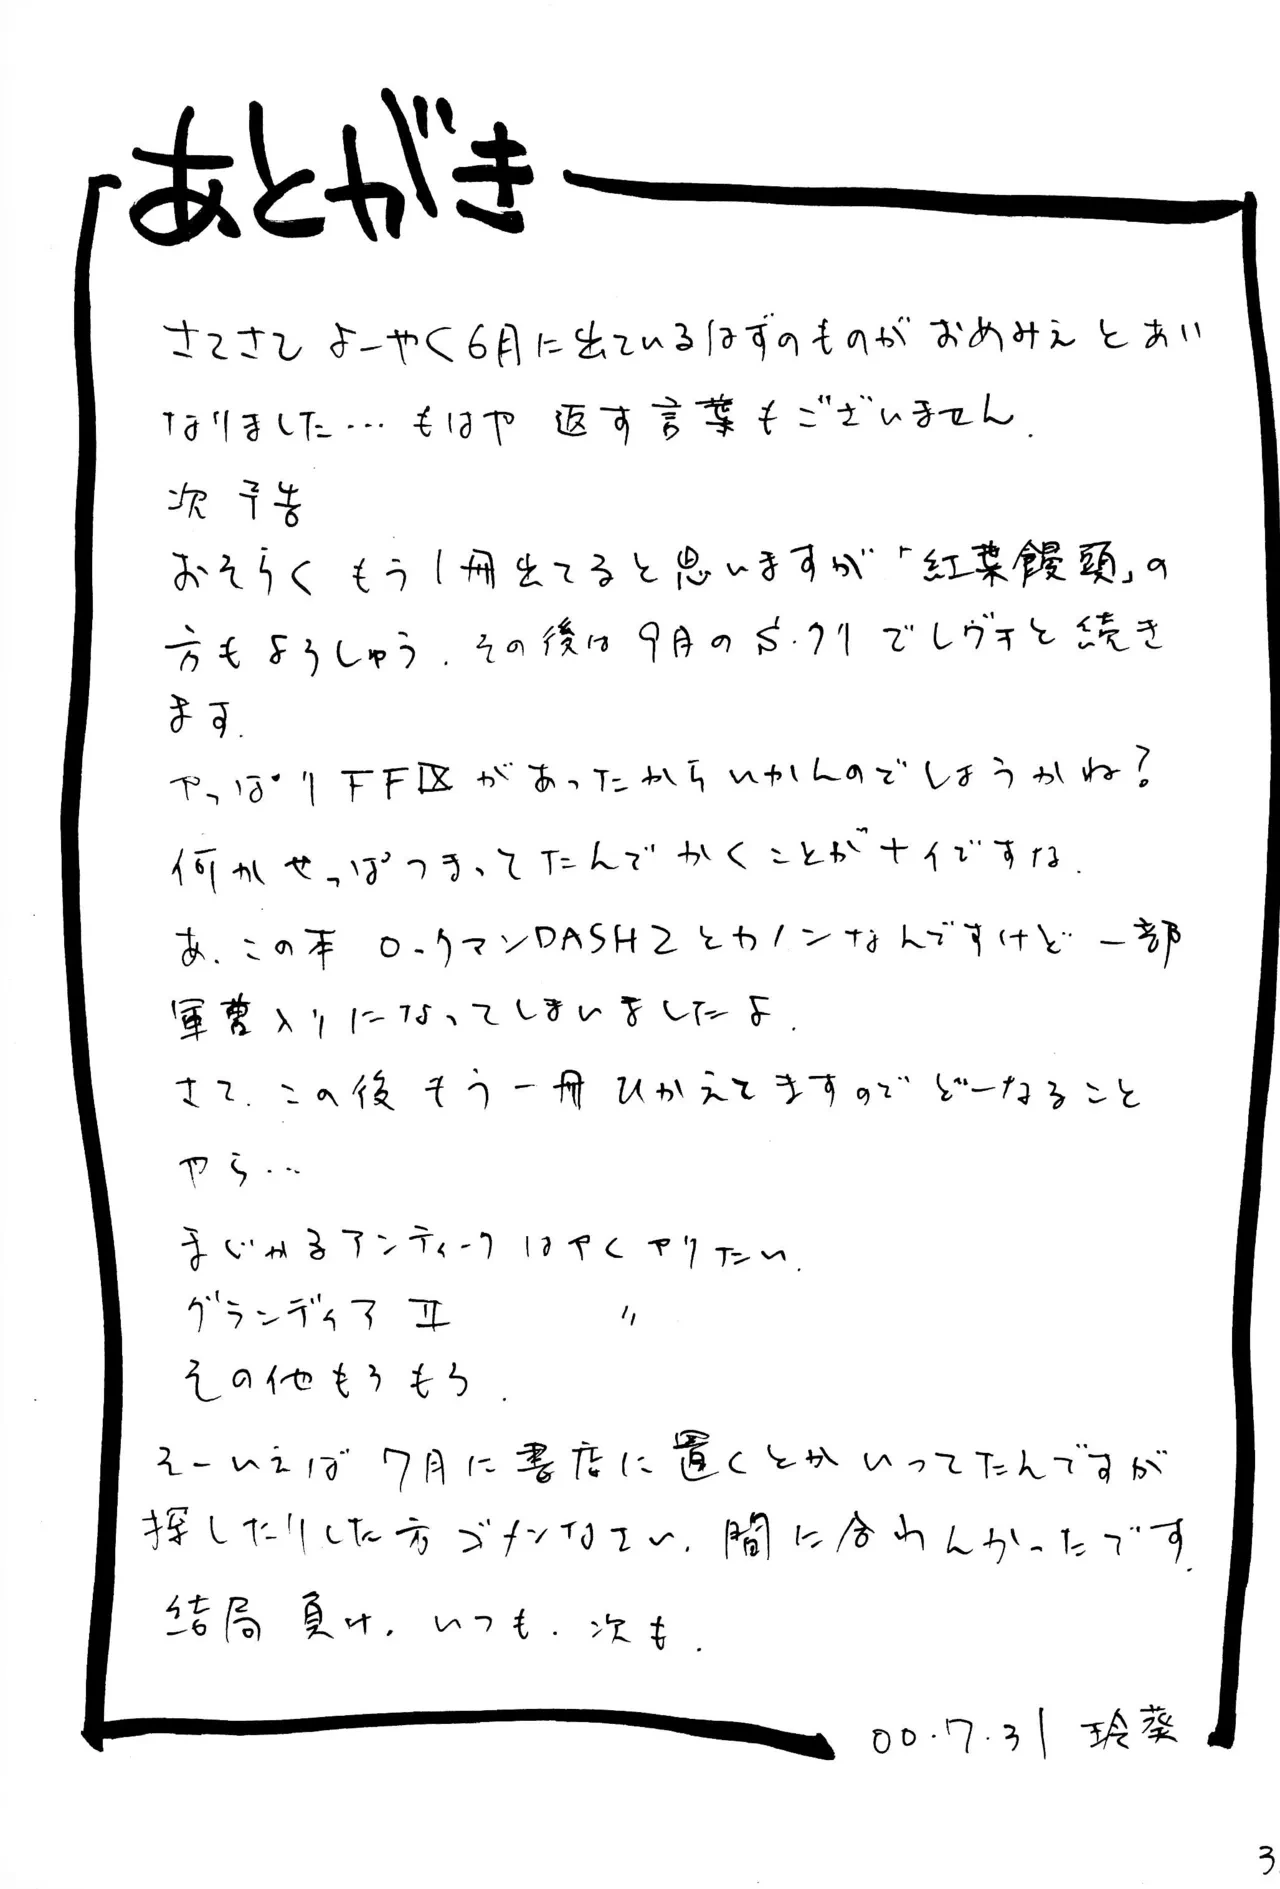 あとがき
さてさて よーやく6月に出ているはずのものがおめみえとあい
なりました…もはや 返す言葉もございません.
次予告
おそらくもう1冊出てると思いますが「紅葉饅頭」の
方もよろしゅう.その後は9月のS.クリでレヴォと続き
ます.
やっぱりFFⅨがあったからいかんのでしょうかね?
何かせっぱつまってたんでかくことがナイですな.
あ.この本 ロックマンDASH2とカノンなんですけど一部
軍曹入りになってしまいましたよ.
さて.この後もう一冊ひかえてますのでどーなること
やら…
まじかるアンティークはやくやりたい.
グランディアⅡ 〃
その他もろもろ.
そーいえば7月に書店に置くとかいってたんですが
探したりした方ゴメンなさい.間に合わんかったです.
結局負け.いつも.次も.
00.7.31 玲葵
3